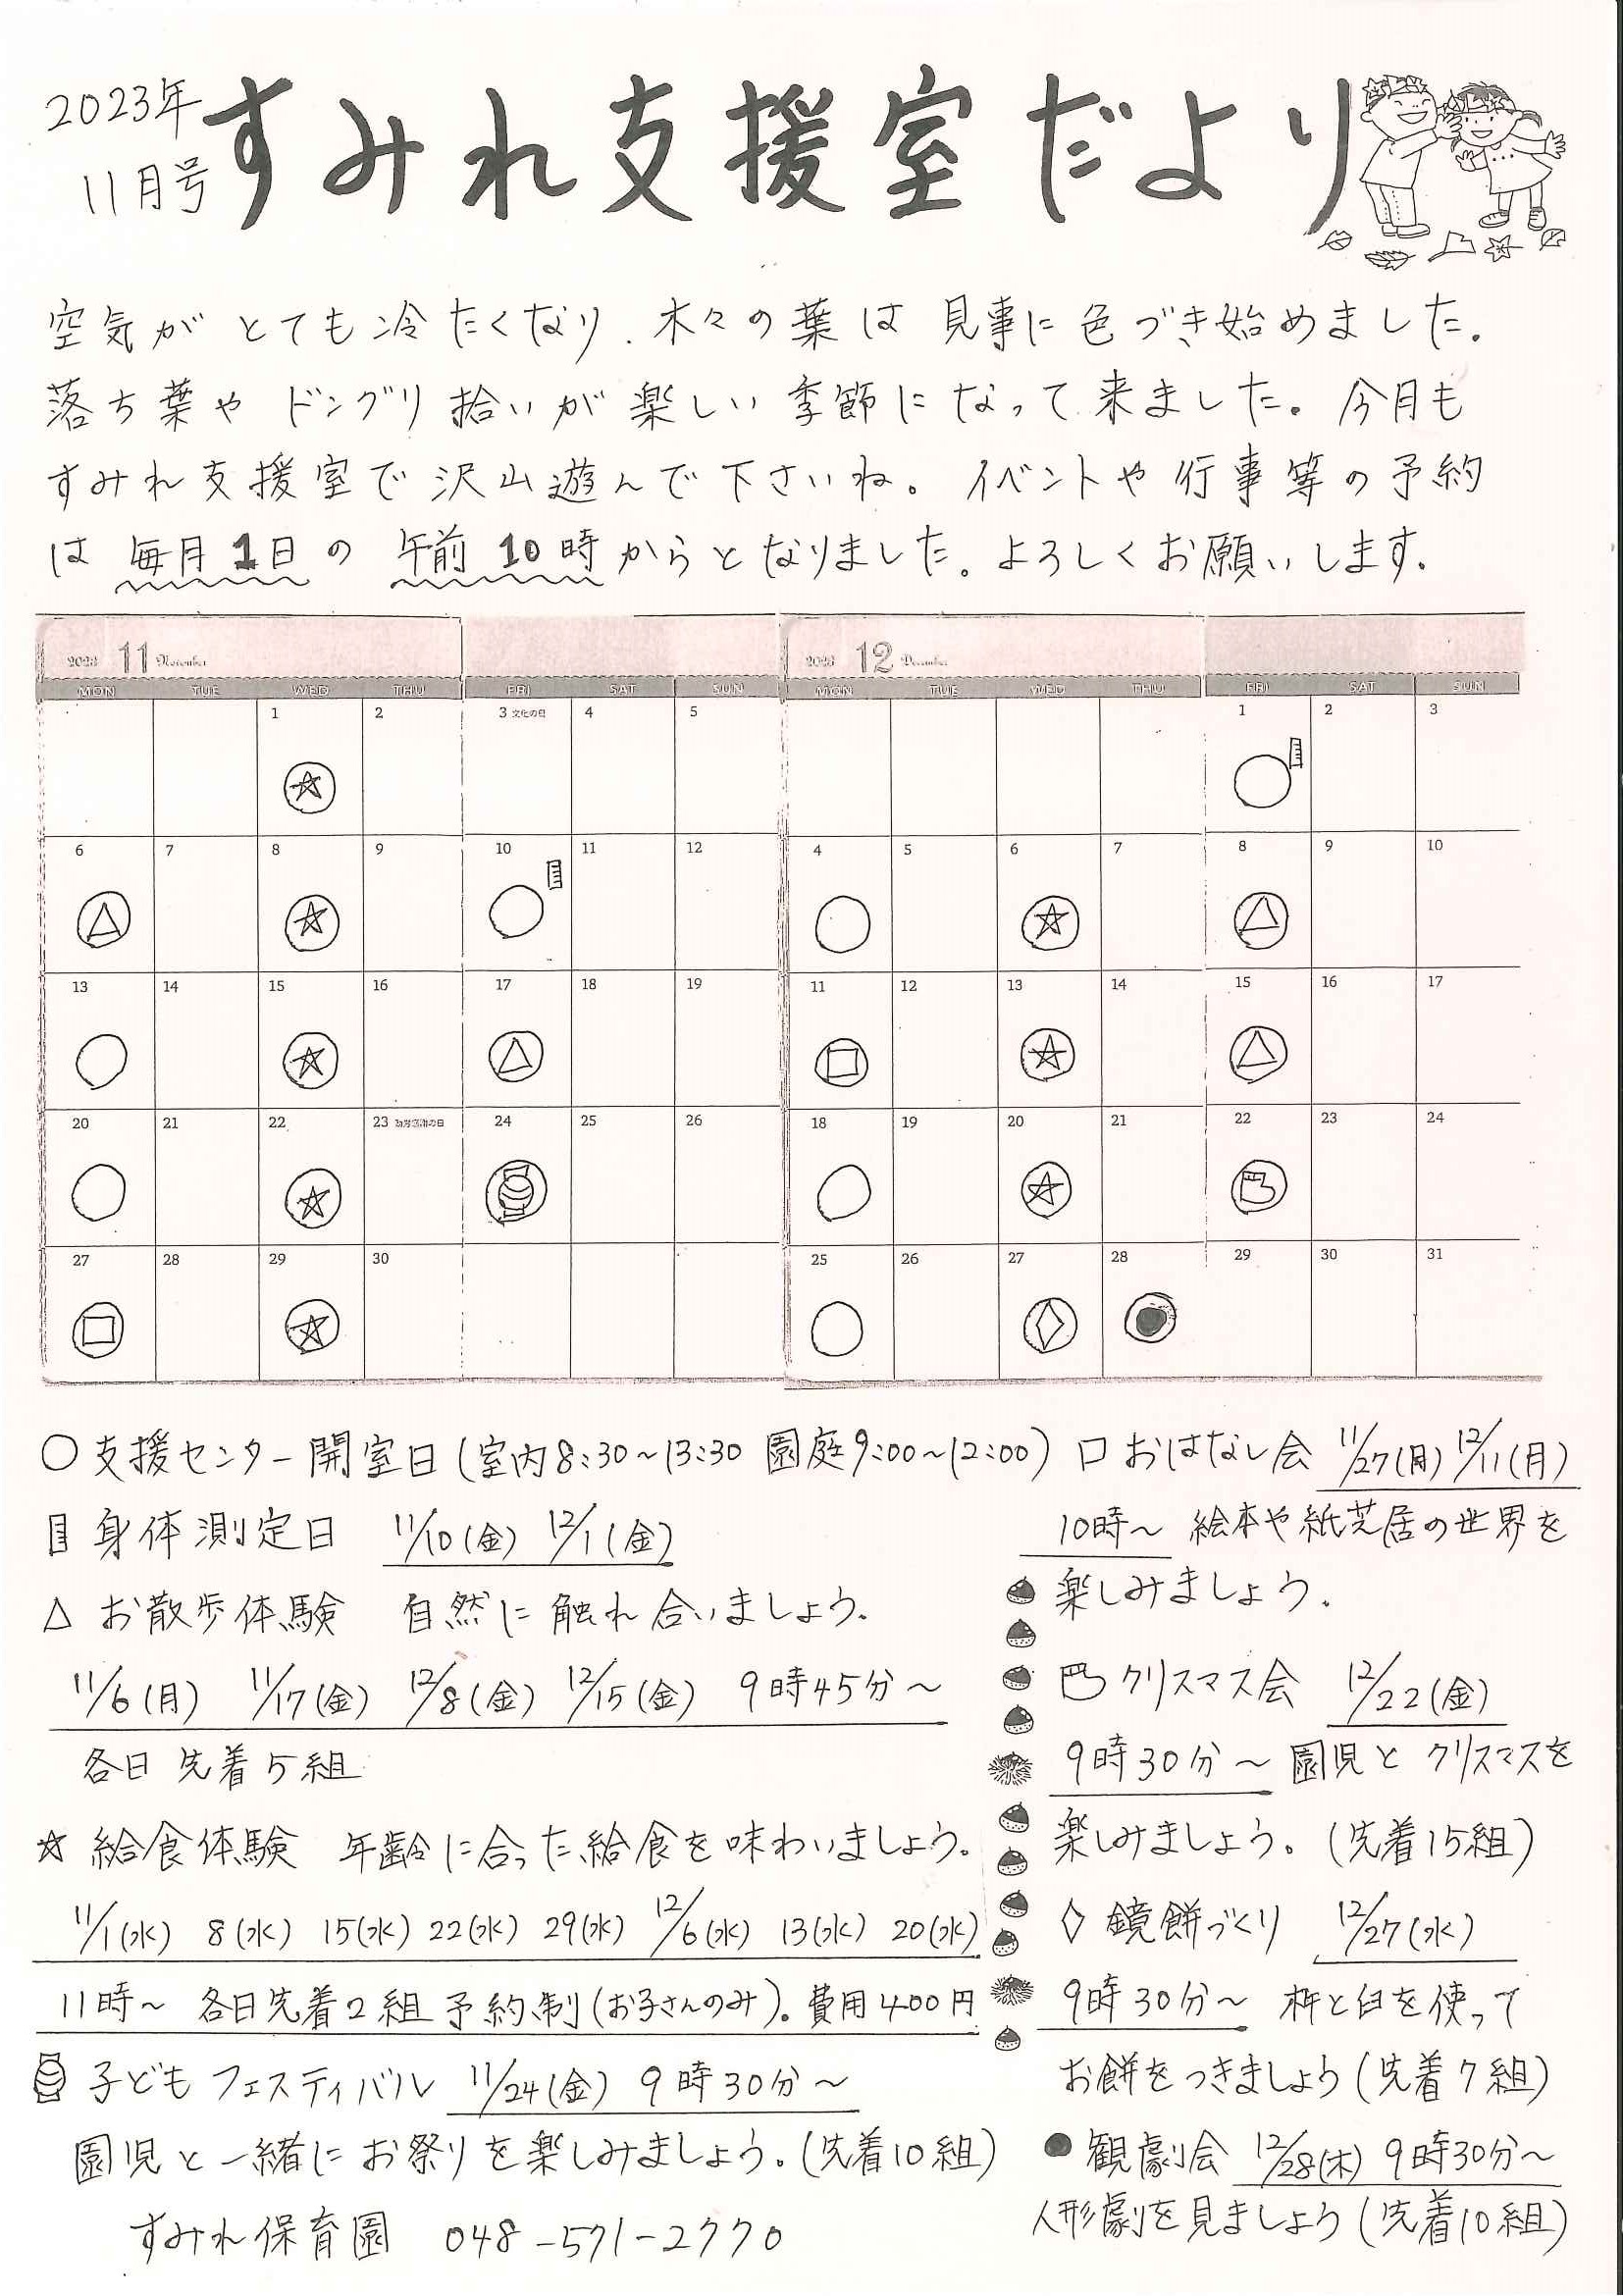 2023年
11月号
すみれ支援室だより
空気がとても冷たくなり、木々の葉は見事に色づき始めました。
落ち葉やドングリ拾いが楽しい季節になって来ました。今月も
すみれ支援室で沢山遊んで下さいね。イベントや行事等の予約
は毎月1日の午前10時からとなりました。よろしくお願いします。
2023 11 November
MON TUE WED THU FRI SAT SUN
1 2 3 文化の日 4 5
6 7 8 9 10 11 12
13 14 15 16 17 18 19
20 21 22 23 勤労感謝の日 24 25 26
27 28 29 30
2023 12 December
MON TUE WED THU FRI SAT SUN
1 2 3
4 5 6 7 8 9 10
11 12 13 14 15 16 17
18 19 20 21 22 23 24
25 26 27 28 29 30 31
○支援センター開室日(室内8:30~13:30 園庭9:00~12:00)
身体測定日 11/10(金) 12/1(金)
△ お散歩体験 自然に触れ合いましょう。
11/6(月) 11/17(金) 12/8(金) 12/15(金) 9時45分~
各日先着5組
☆ 給食体験 年齢に合った給食を味わいましょう。
11/1(水) 8(水) 15(水) 22(水) 29(水) 12/6(水) 13(水) 20(水)
11時~ 各日先着2組 予約制(お子さんのみ)。費用400円
子どもフェスティバル 11/24(金) 9時30分~
園児と一緒にお祭りを楽しみましょう。(先着10組)
すみれ保育園 048-571-2770
□ おはなし会 11/27(月) 12/11(月)
10時~ 絵本や紙芝居の世界を
楽しみましょう。
クリスマス会 12/22(金)
9時30分~ 園児とクリスマスを
楽しみましょう。(先着15組)
◇ 鏡餅づくり 12/27(水)
9時30分~ 杵と臼を使って
お餅をつきましょう(先着7組)
● 観劇会 12/28(木) 9時30分~
人形劇を見ましょう(先着10組)